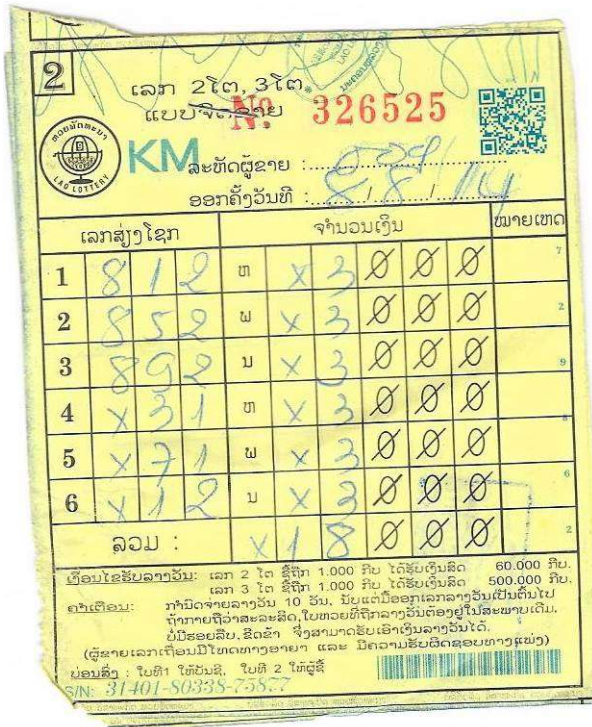 2
ເລກ 2ໂຕ, 3ໂຕ
ແບບຈີກຂາຍ
Nº 326525
ຫວຍພັດທະນາ
LAO LOTTERY
KM
ລະຫັດຜູ້ຂາຍ :
ອອກຄັ້ງວັນທີ : 8/8/14
ເລກສ່ຽງໂຊກ ຈຳນວນເງິນ ໝາຍເຫດ
1 812 ຫ x3000 7
2 852 ພ x3000 2
3 892 ນ x3000 9
4 x31 ຫ x3000
5 x71 ພ x3000 8
6 x12 ນ x3000 6
ລວມ : x18000 2
ເງື່ອນໄຂຮັບລາງວັນ: ເລກ 2 ໂຕ ຊື້ຖືກ 1.000 ກີບ ໄດ້ຮັບເງິນສົດ 60.000 ກີບ.
ເລກ 3 ໂຕ ຊື້ຖືກ 1.000 ກີບ ໄດ້ຮັບເງິນສົດ 500.000 ກີບ.
ຄຳເຕືອນ: ກຳນົດຈ່າຍລາງວັນ 10 ວັນ, ນັບແຕ່ມື້ອອກເລກລາງວັນເປັນຕົ້ນໄປ
ຖ້າກາຍຖືວ່າສະລະສິດ, ໃບຫວຍທີ່ຖືກລາງວັນຕ້ອງຢູ່ໃນສະພາບເດີມ.
ບໍ່ມີຮອຍລຶບ, ຂີດຂ້າ ຈຶ່ງສາມາດຮັບເອົາເງິນລາງວັນໄດ້.
(ຜູ້ຂາຍເລກເຖື່ອນມີໂທດທາງອາຍາ ແລະ ມີຄວາມຮັບຜິດຊອບທາງແພ່ງ)
ບ່ອນສົ່ງ : ໃບທີ1 ໃຫ້ບັນຊີ, ໃບທີ 2 ໃຫ້ຜູ້ຊື້
S/N: 31401-80338-75877